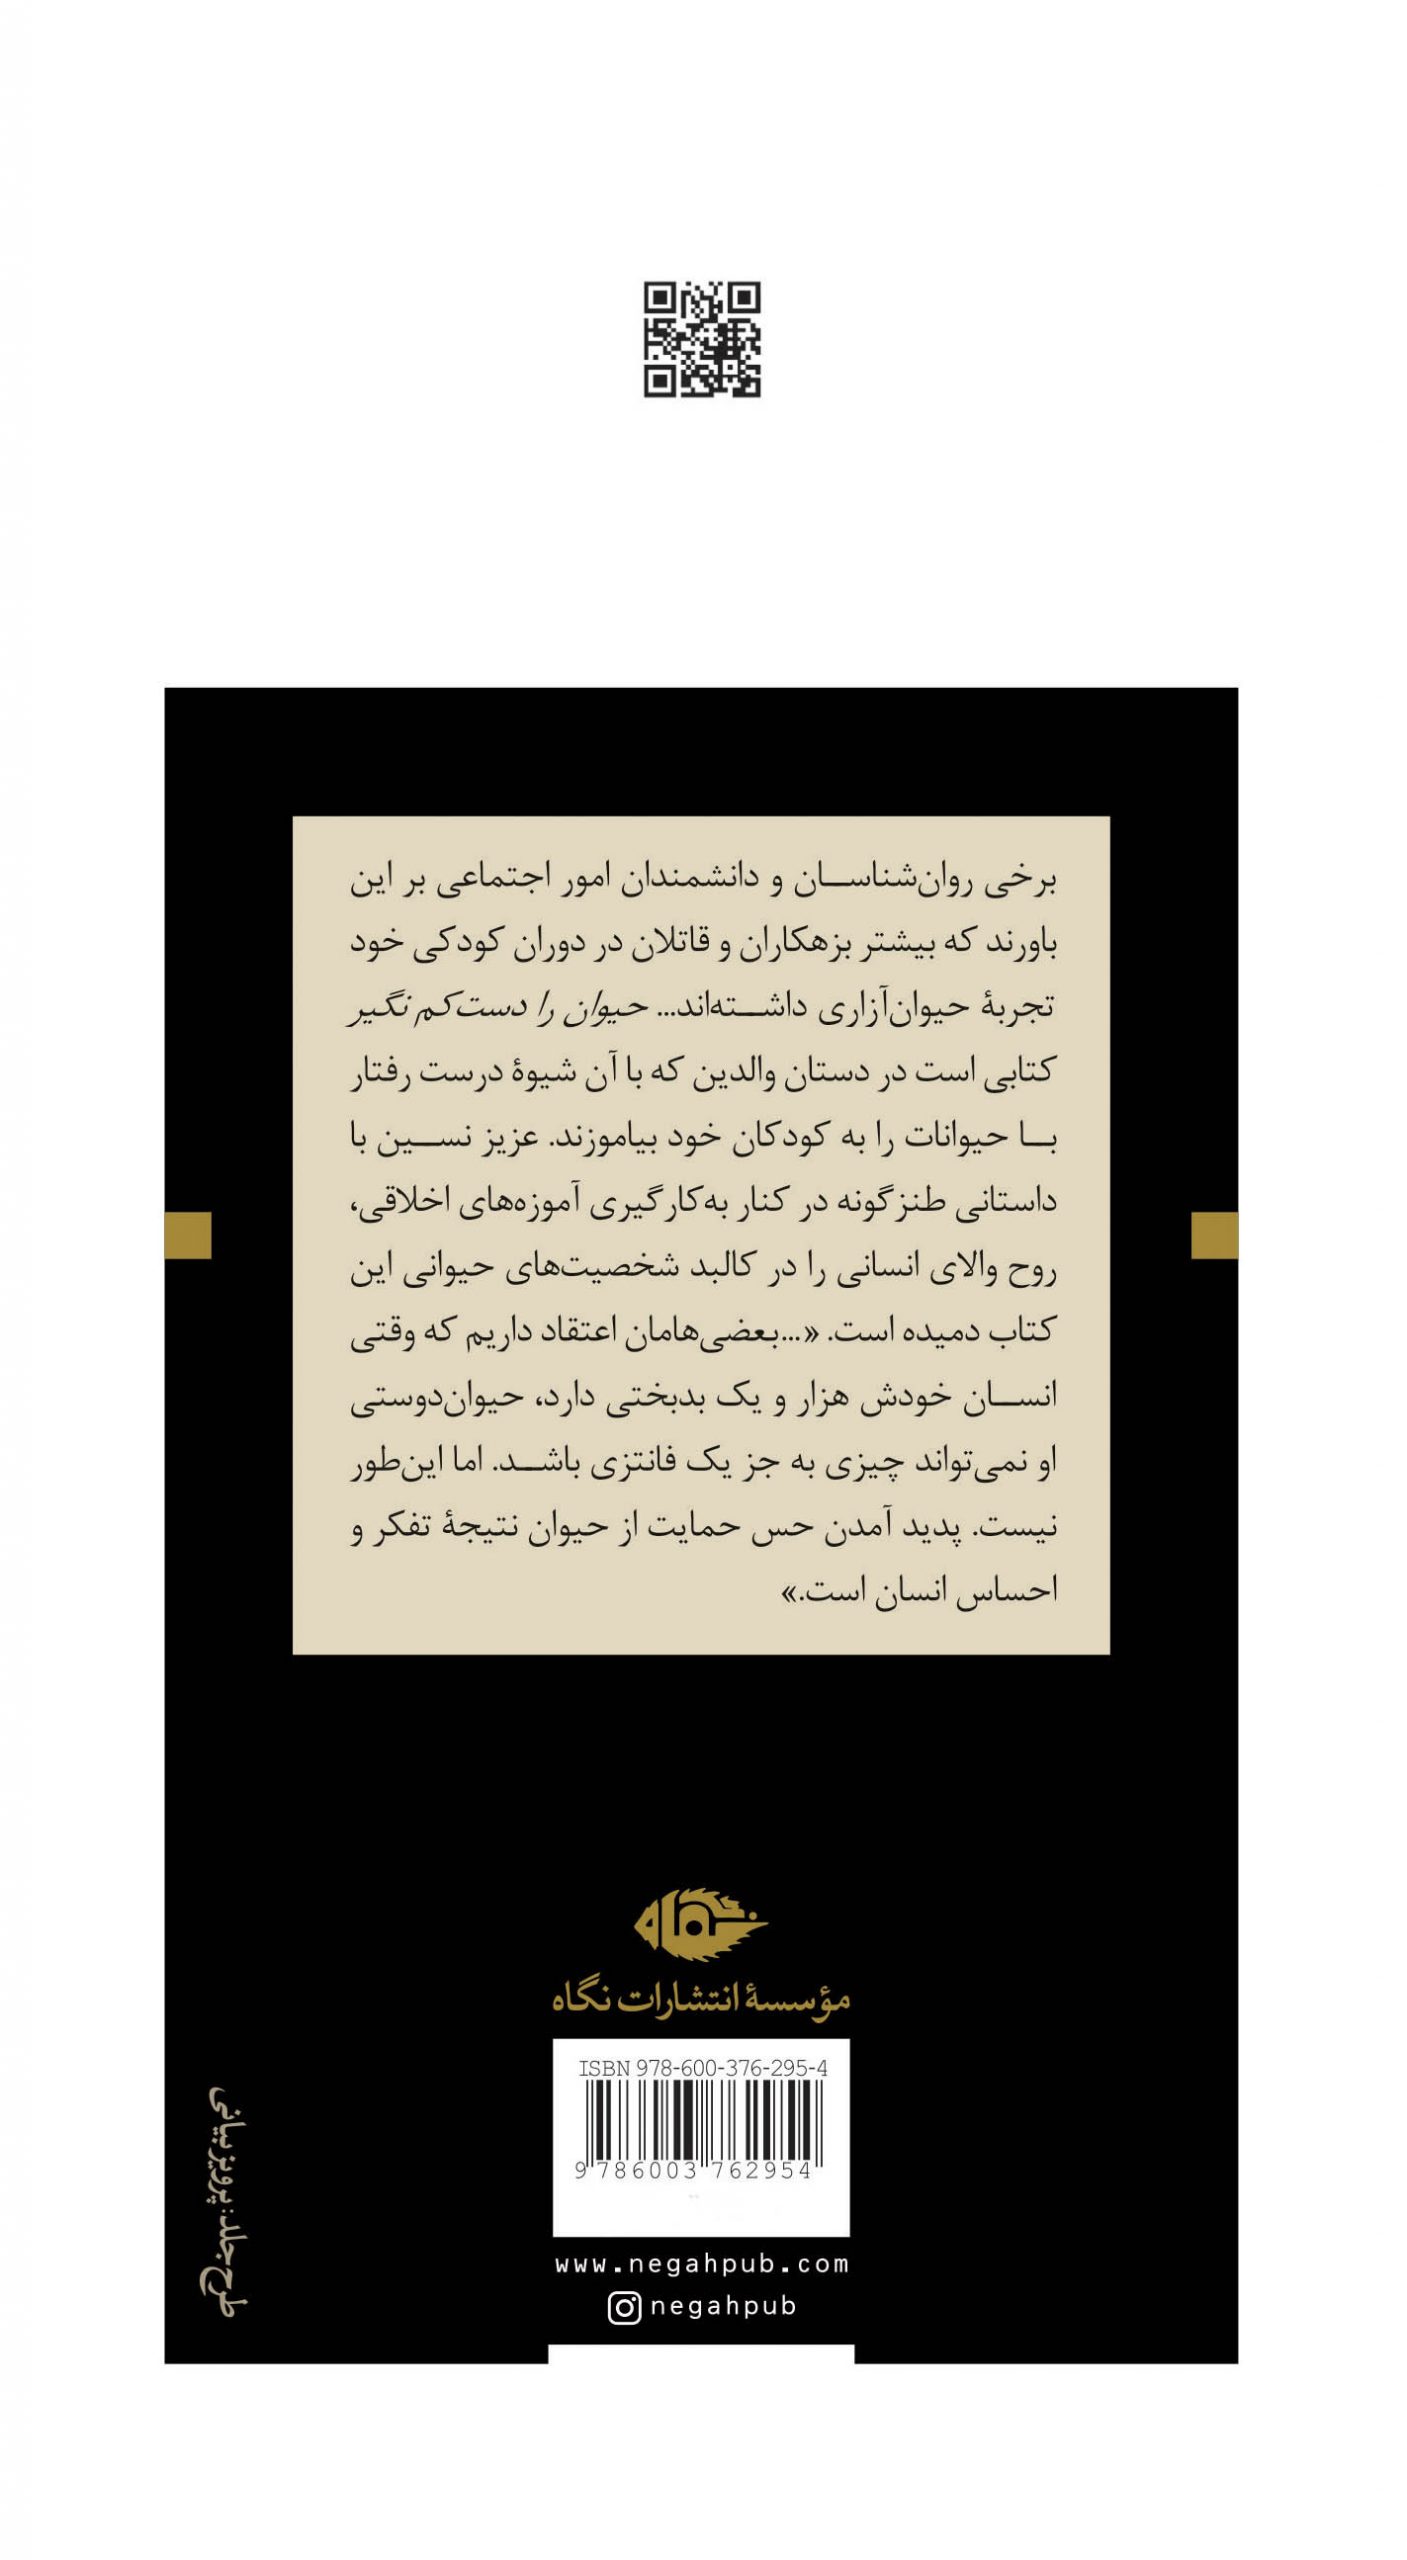 برخی روان‌شناسان و دانشمندان امور اجتماعی بر این
باورند که بیشتر بزهکاران و قاتلان در دوران کودکی خود
تجربهٔ حیوان‌آزاری داشته‌اند... حیوان را دست‌کم نگیر
کتابی است در دستان والدین که با آن شیوهٔ درست رفتار
با حیوانات را به کودکان خود بیاموزند. عزیز نسین با
داستانی طنزگونه در کنار به‌کارگیری آموزه‌های اخلاقی،
روح والای انسانی را در کالبد شخصیت‌های حیوانی این
کتاب دمیده است. «...بعضی‌هامان اعتقاد داریم که وقتی
انسان خودش هزار و یک بدبختی دارد، حیوان‌دوستی
او نمی‌تواند چیزی به جز یک فانتزی باشد. اما این‌طور
نیست. پدید آمدن حس حمایت از حیوان نتیجهٔ تفکر و
احساس انسان است.»
نگاه
مؤسسهٔ انتشارات نگاه
ISBN 978-600-376-295-4
9 786003 762954
www.negahpub.com
negahpub
طرح جلد: پرویز بیانی